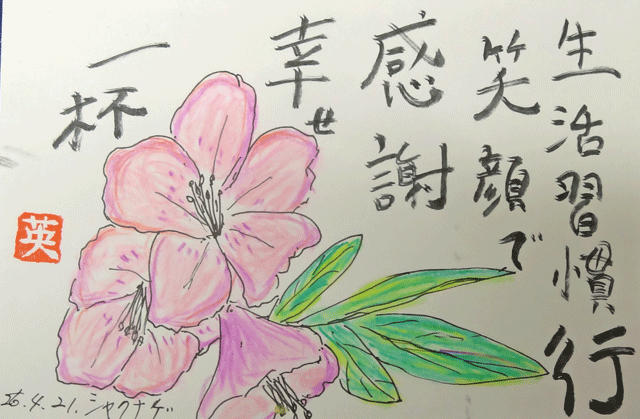 生活習慣行
笑顔で
感謝
幸せ
一杯
英
26.4.21.シャクナゲ